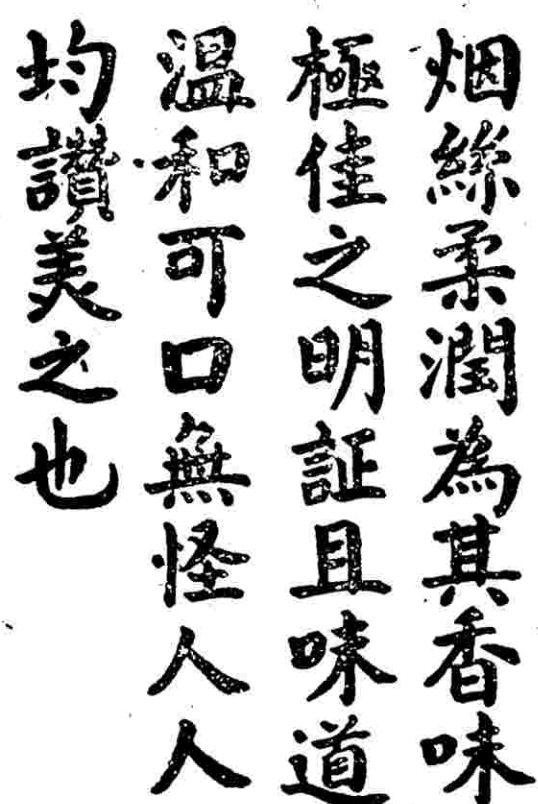 烟絲柔潤為其香味
極佳之明証且味道
溫和可口無怪人人
均讚美之也